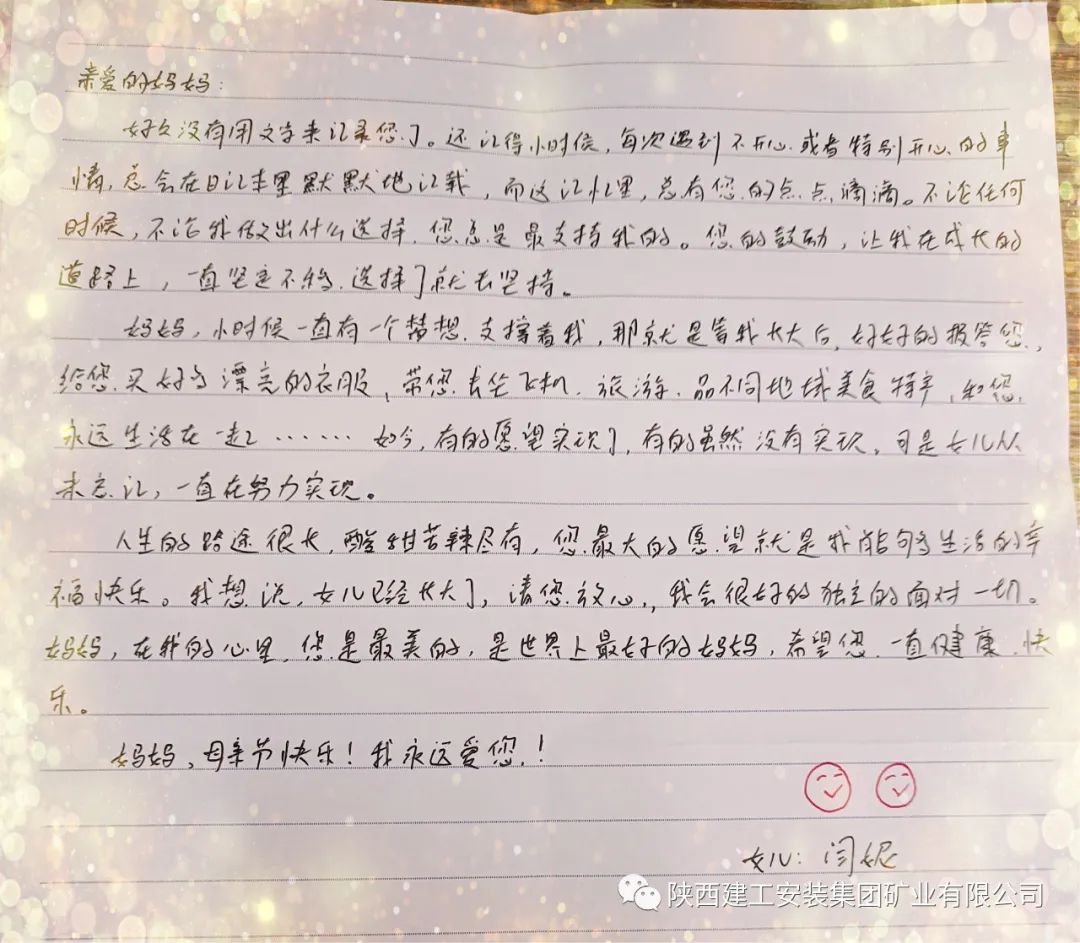 亲爱的妈妈:
好久没有用文字来记录您了。还记得小时候,每次遇到不开心或者特别开心的事
情,总会在日记本里默默地记载,而这记忆里,总有您的点点滴滴。不论任何
时候,不论我做出什么选择,您总是最支持我的。您的鼓励,让我在成长的
道路上,一直坚定不移,选择了就去坚持。
妈妈,小时候一直有一个梦想支撑着我,那就是等我长大后,好好的报答您,
给您买好多漂亮的衣服,带您去坐飞机、旅游、品不同地域美食特产,和您
永远生活在一起……如今,有的愿望实现了,有的虽然没有实现,可是女儿从
未忘记,一直在努力实现。
人生的路途很长,酸甜苦辣尽有,您最大的愿望就是我能够生活的幸
福快乐。我想说,女儿已经长大了,请您放心,我会很好的独立的面对一切。
妈妈,在我的心里,您是最美的,是世界上最好的妈妈,希望您一直健康、快
乐。
妈妈,母亲节快乐!我永远爱您!
女儿:闫妮
陕西建工安装集团矿业有限公司